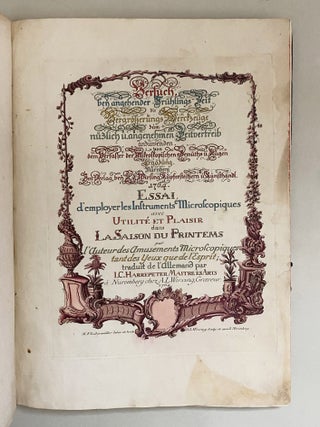 Versuch,
bey angehender Frühlings Zeit
die
Vergrösserungs Werckzeuge
zum
nüzlich u. angenehmen Zeitvertreib
anzuwenden
von
dem Verfasser der Mikroskopischen Gemüths u. Augen
Ergözung
Nürnberg
1764.
ESSAI,
d'employer les Instruments Microscopiques
avec
UTILITÉ ET PLAISIR
dans
LA SAISON DU PRINTEMS
par
l'Auteur des Amusements Microscopiques
tant des Yeux que de l'Esprit;
traduit de l'Allemand par
I. C. HARREPETER MAITRE ÈS ARTS
à Nuremberg chez A. L. Wirsing, Graveur.